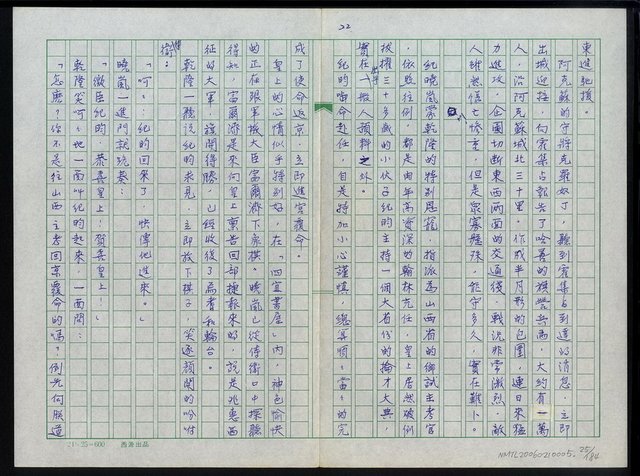 22
東進馳援。
阿克蘇的守將克爾奴丁，聽到霍集占到達的消息，立即
出城迎接，向霍集占報告了哈密的模樣兵馬，大約有一萬
人，沿阿克蘇城北三十里，作成半月形的包圍，連日來猛
力進攻，企圖切斷東西兩面的交通後，戰況非常激烈，敵
人雖然傷亡慘重，但是眾寡懸殊，能守多久，實在難卜。
紀曉嵐蒙乾隆的特別恩寵，指派為山西省的鄉試主考官
，依照往例，都是由年高資深的翰林充任，皇上居然破例
拔擢三十多歲的小伙子紀昀主持一個大省份的掄才大典，
實在出乎一般人預料之外。
紀昀啣命赴任，自是特加小心謹慎，總算順當的完
成了使命返京，立即進宮覆命。
皇上的心情似乎特別好，在「四宜書屋」內，神色愉快
的正在跟軍機大臣富爾濟下象棋。曉嵐已從侍衛口中探聽
得知，富爾濟是來向皇上稟告回部捷報來的，說是兆惠西
征的大軍，旗開得勝，已經收復了烏魯木輪台。
乾隆一聽說紀昀求見，立即放下棋子，笑逐顏開的吩咐
侍衛：
「呵！紀昀回來了，快傳他進來。」
曉嵐一進門就跪奏：
「微臣紀昀，恭喜皇上！賀喜皇上！」
乾隆笑呵呵地一面叫紀昀起來，一面問：
「怎麼？你不是往山西主考回京覆命的嗎？倒先向朕道
21-25-600 西菱出品
NMTL20060210005. 25/184